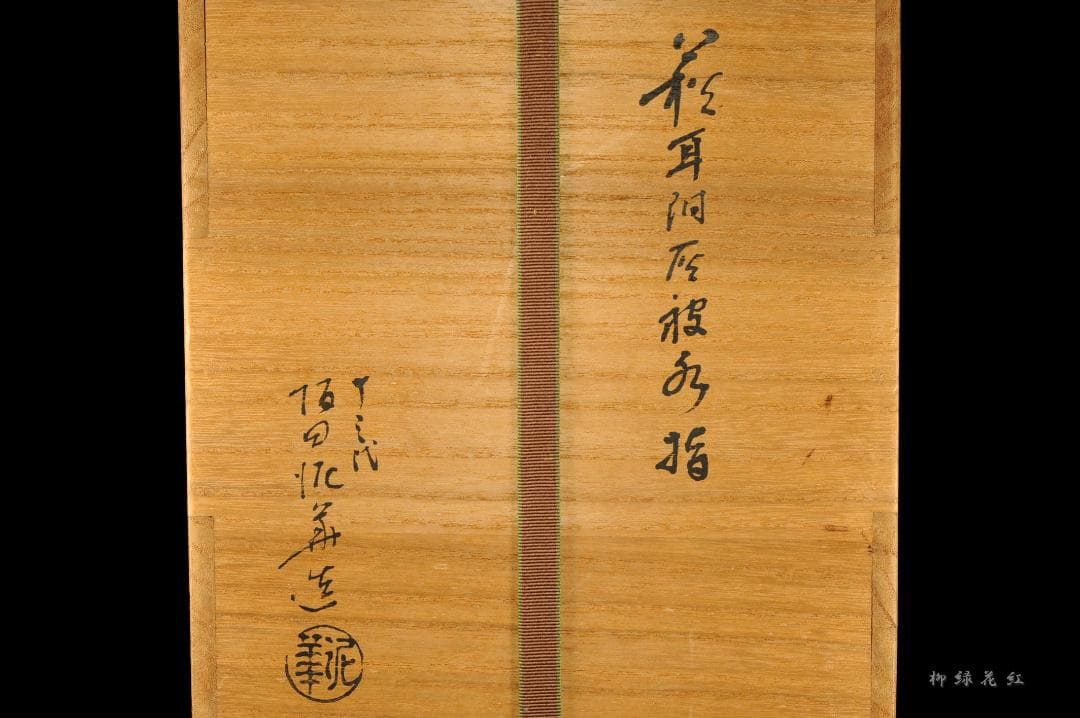 萩耳附灰被水指
十三代
坂田泥華造
泥華
柳緑花紅